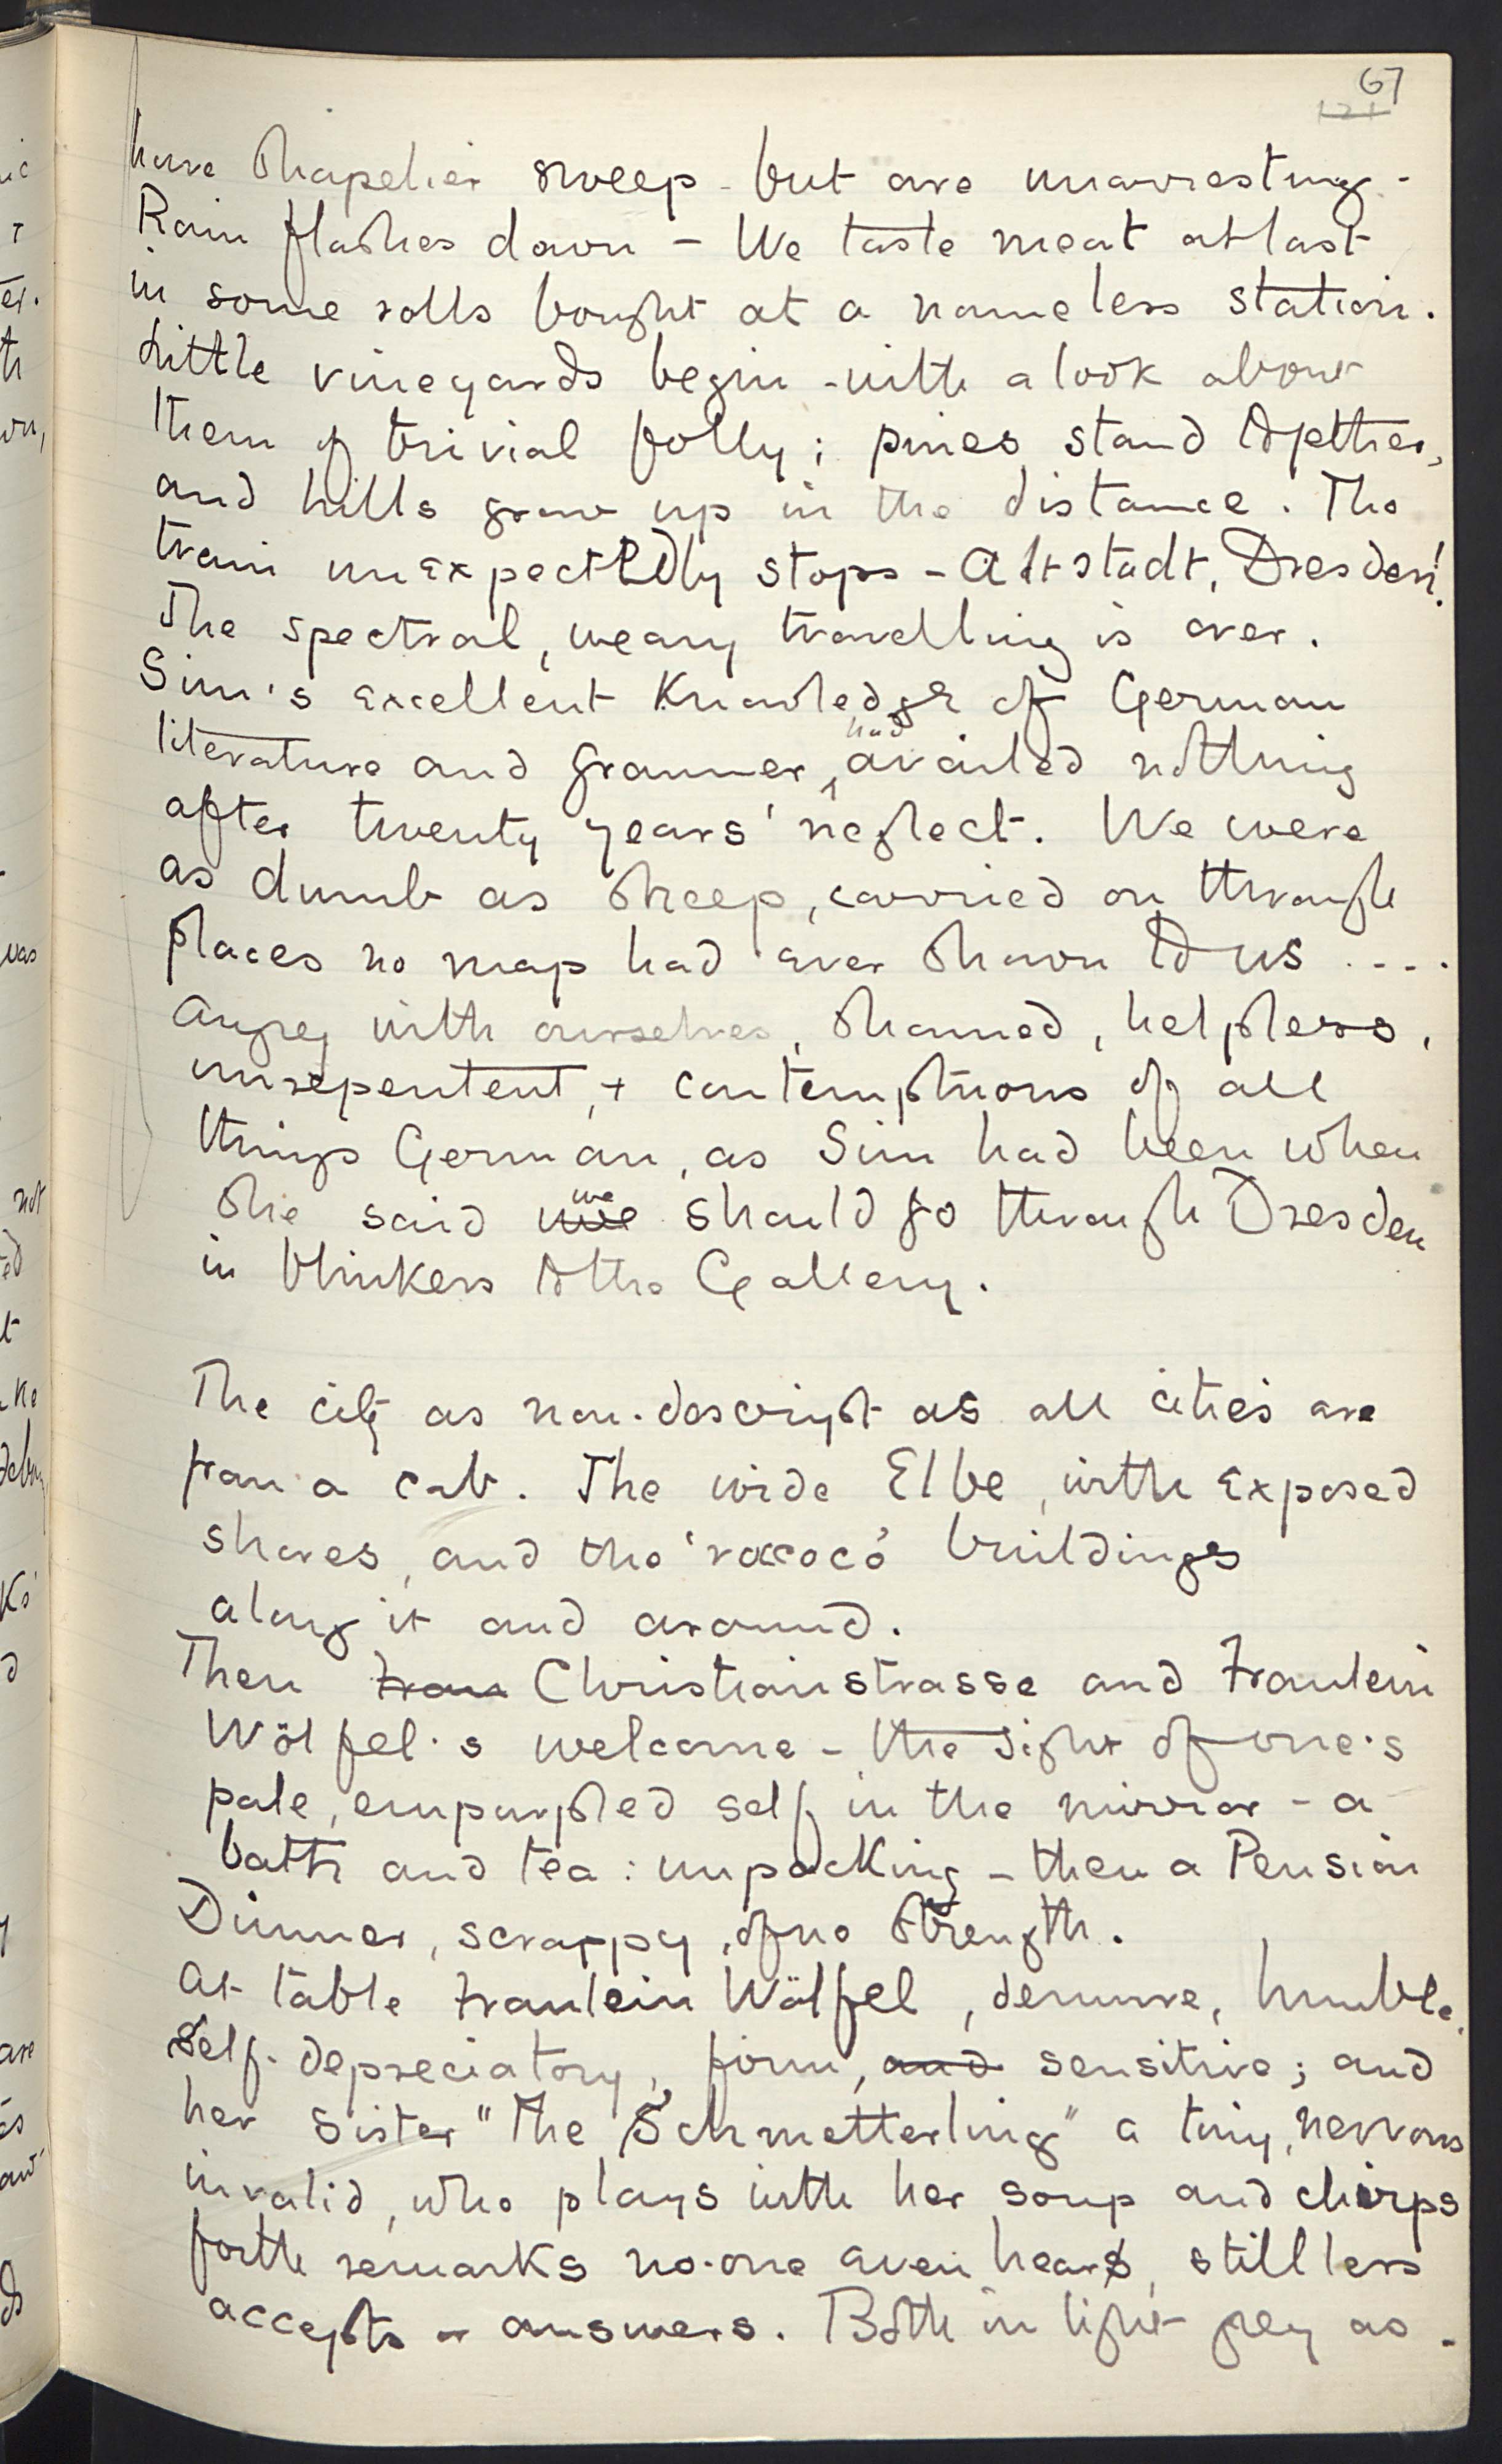 67
have shapelier sweep - but are unarresting -
Rain flashes down - We taste meat at last
in some rolls bought at a nameless station.
Little vineyards begin - with a look about
them of trivial folly; pines stand together,
and hills grow up in the distance. The
train unexpectedly stops - Altstadt, Dresden!
The spectral, weary travelling is over.
Sim's excellent knowledge of German
had
literature and grammer, availed nothing
after twenty years' neglect. We were
as dumb as sheep, carried on through
places no map had ever shown to us ....
Angrey with ourselves, shamed, helpless,
unrepentent, + contemptuous of all
things German, as Sim had been when
she said we should go through Dresden
in blinkers to the Gallery.
The city as non-descript as all cities are
from a cab. The wide Elbe, with exposed
shores, and the 'rococo' buildings
along it and around.
Then Christianstrasse and Fraulein
Wölfel's welcome - the sight of one's
pale, empurpled self in the mirror - a
bath and tea: unpacking - then a Pension
Dinner, scrappy, of no strength.
At table Fraulein Wölfel, demure, humble,
self-depreciatory, firm, and sensitive; and
her sister "The Schmetterling" a tiny, nervous
invalid, who plays with her soup and chirps
forth remarks no-one even hears, still less
accepts or answers. Both in light grey as